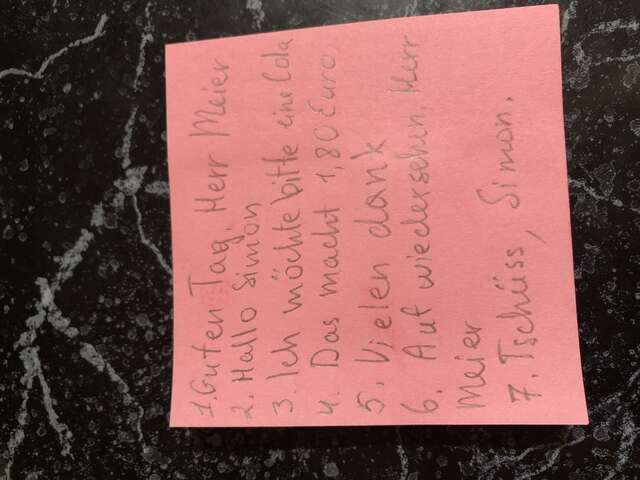 1. Guten Tag, Herr Meier
2. Hallo Simon
3. Ich möchte bitte eine Cola
4. Das macht 1,80 Euro
5. Vielen dank
6. Auf wiedersehen, Herr
Meier
7. Tschüss, Simon.